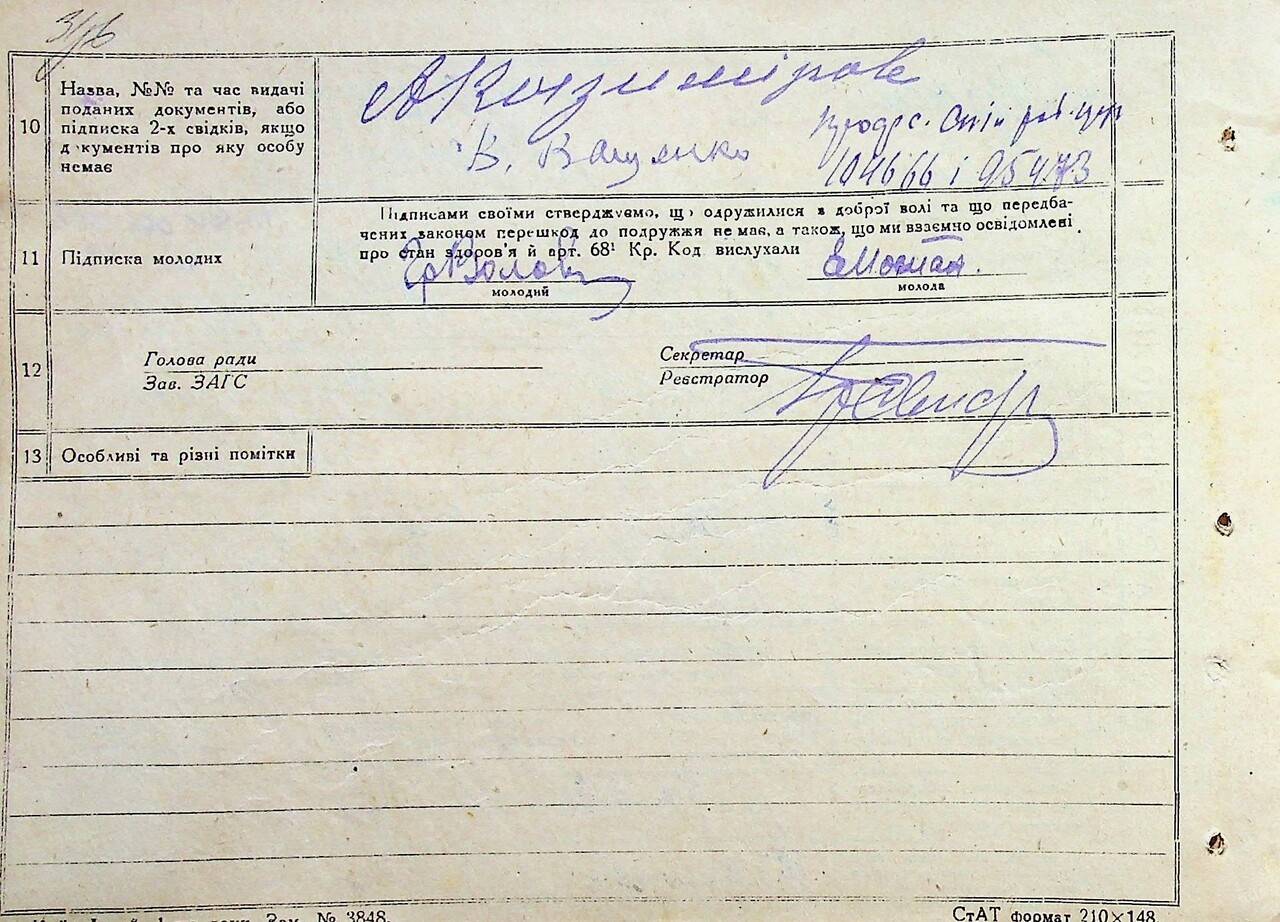 10 Назва, №№ та час видачі
поданих документів, або
підписка 2-х свідків, якщо
д кументів про яку особу
немає
В. Ващенко
104666 і 95473
11 Підписка молодих
Підписами своїми стверджуємо, що одружилися з доброї волі та що передба-
чених законом перешкод до подружжя немає, а також, що ми взаємно освідомлені
про стан здоров'я й арт. 68¹ Кр. Код вислухали
молодий
молода
12 Голова ради
Зав. ЗАГС
Секретар
Реєстратор
13 Особливі та різні помітки
Зам. № 3848.
СтАТ формат 210×148.